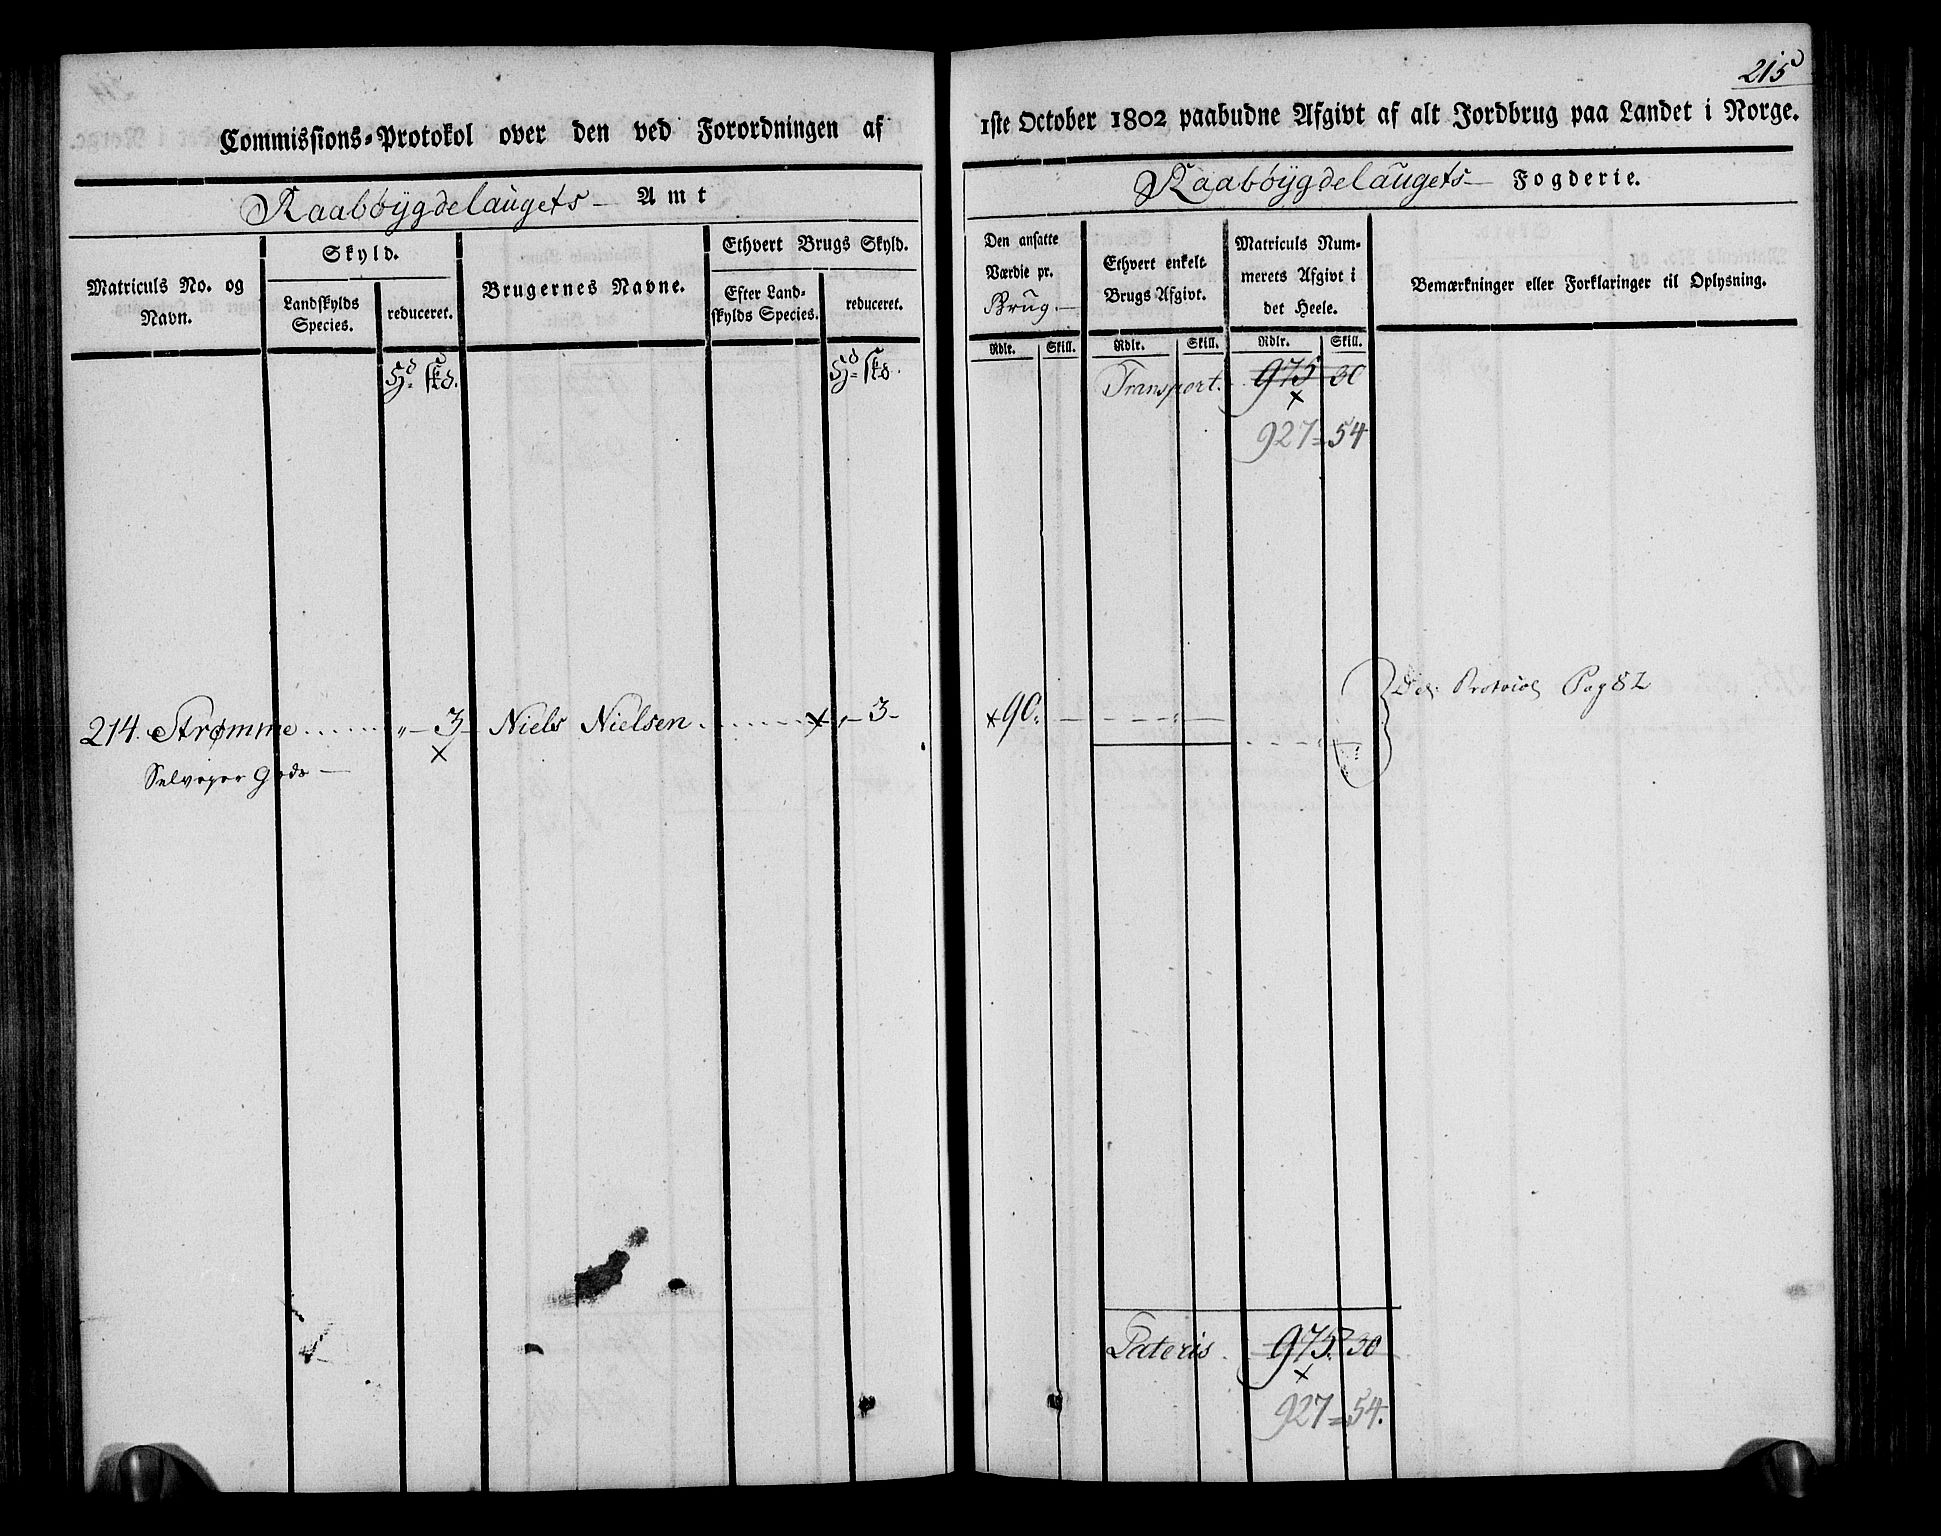 215
Commissions-Protokol over den ved Forordningen af
Raabøygdelaugets Amt
Matriculs No. og
Navn.
Skyld.
Landskylds
Species.
reduceret.
Brugernes Navne.
Ethvert Brugs Skyld.
Efter Land-
skylds Species.
reduceret.
Hd. skd.
Hd. skd.
214. Strømme ...... „ – 3 – Niels Nielsen ...... x „ – 3 –
x
Selveyer Gods –
1ste October 1802 paabudne Afgivt af alt Jordbrug paa Landet i Norge.
Raabøygdelaugets Fogderie.
Den ansatte
Værdie pr.
Brug.
Ethvert enkelt
Brugs Afgivt.
Matriculs Num-
merets Afgivt i
det Heele.
Bemærkninger eller Forklaringer til Oplysning.
Rdlr. Skill. Rdlr. Skill. Rdlr. Skill.
Transport. 975 30
x
927 = 54
Protocol Pag 82
x 90. – – – „ –
Lateris 975. 30
x
927 = 54.